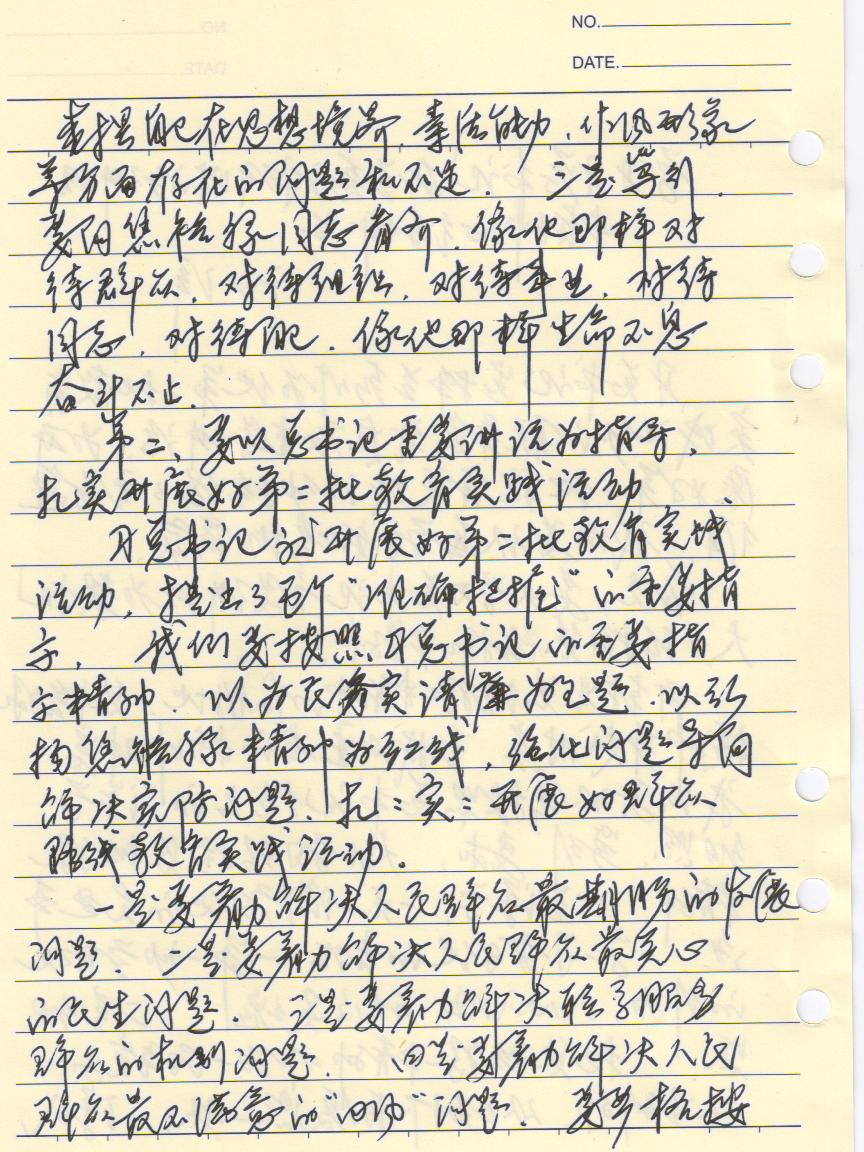 NO.
DATE.
查摆自己在思想境界、素活能力、作风形象
等方面存在的问题和不足. 三要学习.
要向焦裕禄同志看齐. 像他那样对
待群众, 对待组织, 对待事业, 对待
同志, 对待自己. 像他那样生命不息
奋斗不止.
第二、要以总书记重要讲话为指导,
扎实开展好第二批教育实践活动
习总书记就开展好第二批教育实践
活动, 提出了五个“准确把握”的重要指
示, 我们要按照习总书记的重要指
示精神, 以为民务实清廉为主题. 以弘
扬焦裕禄精神为主线, 强化问题导向
解决实际问题. 扎扎实实开展好群众
路线教育实践活动.
一是要着力解决人民群众最期盼的发展
问题. 二是要着力解决人民群众最关心
的民生问题. 三是要着力解决联系服务
群众的机制问题. 四是要着力解决人民
群众最不满意的“四风”问题. 要严格按